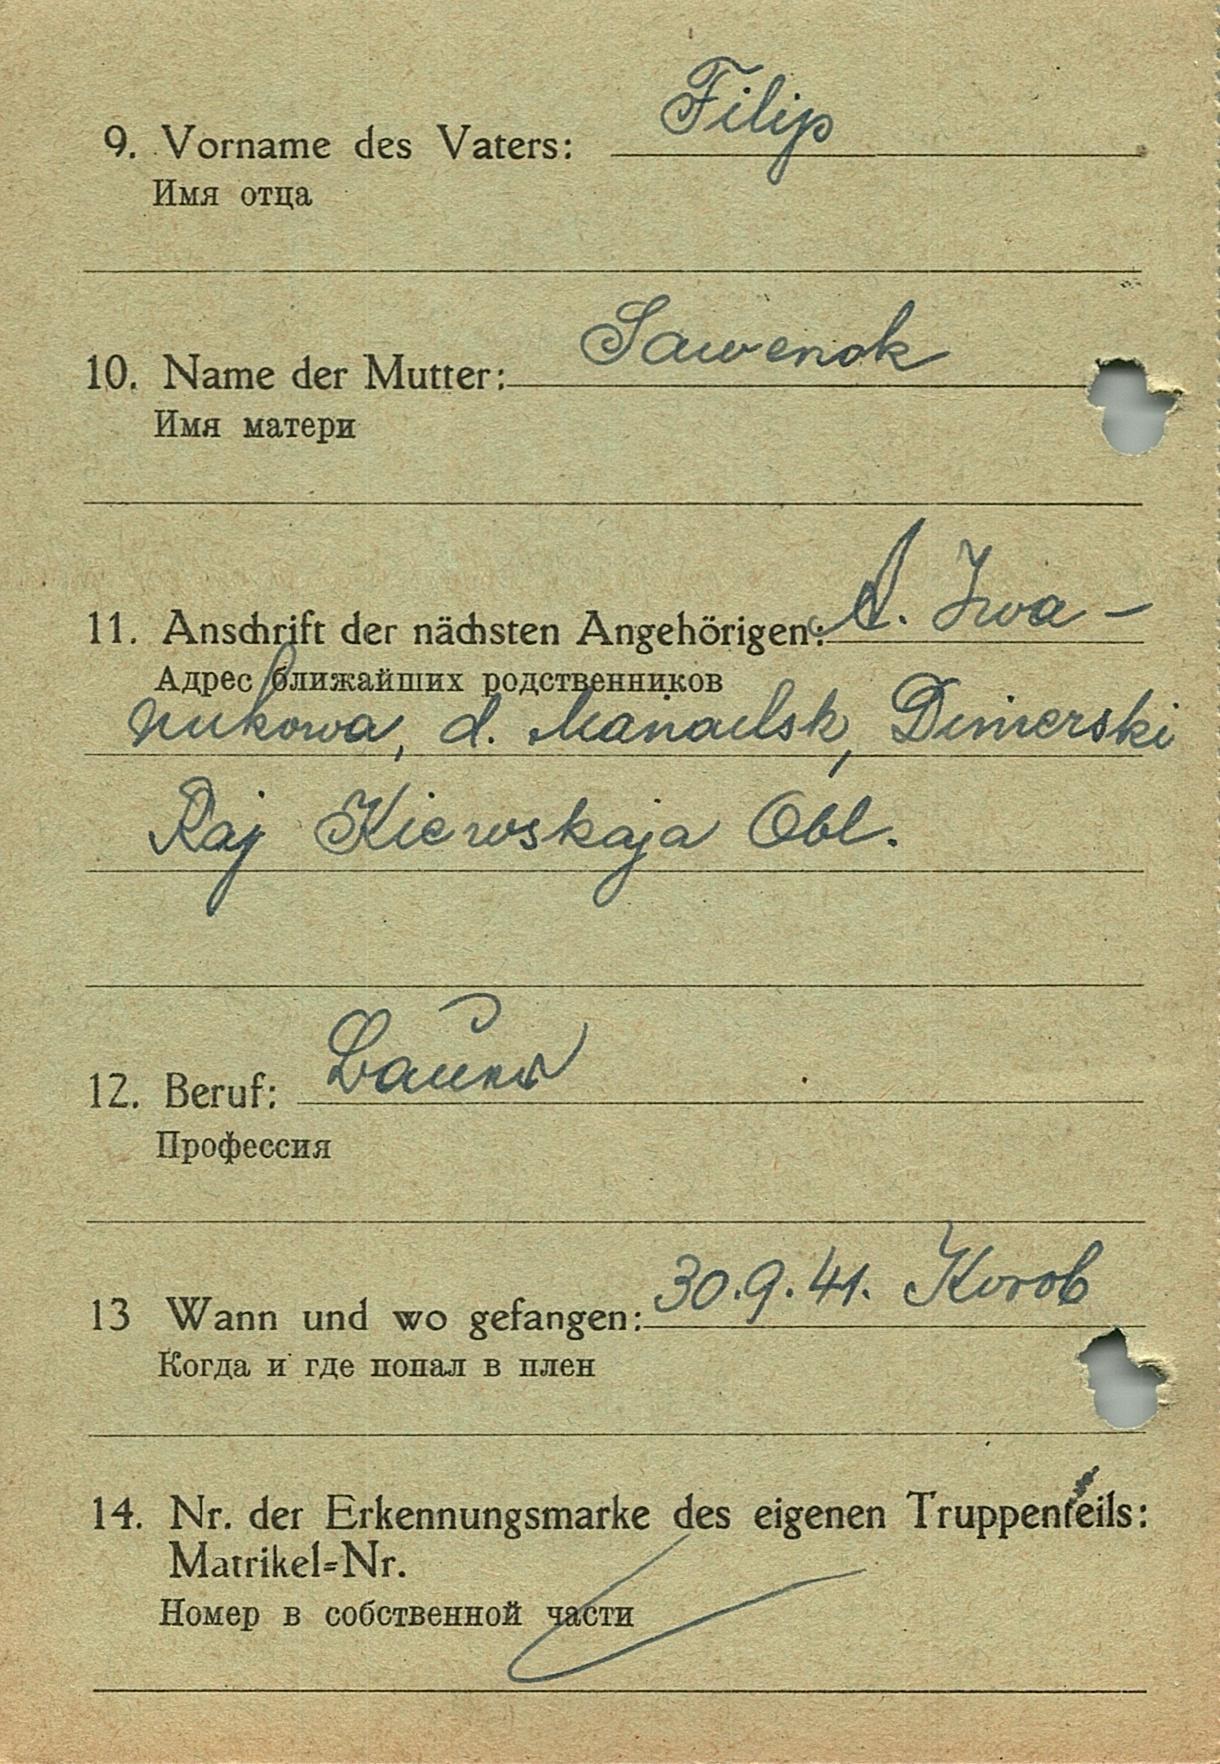 Filip
9. Vorname des Vaters:
Имя отца
Sawenok
10. Name der Mutter:
Имя матери
11. Anschrift der nächsten Angehörigen: A. Iwa-
Адрес ближайших родственников
nukowa, d. Dimerski
Raj Kiewskaja Obl.
12. Beruf: Bauer
Профессия
13 Wann und wo gefangen: 30.9.41. Korob
Когда и где попал в плен
14. Nr. der Erkennungsmarke des eigenen Truppenteils:
Matrikel=Nr.
Номер в собственной части